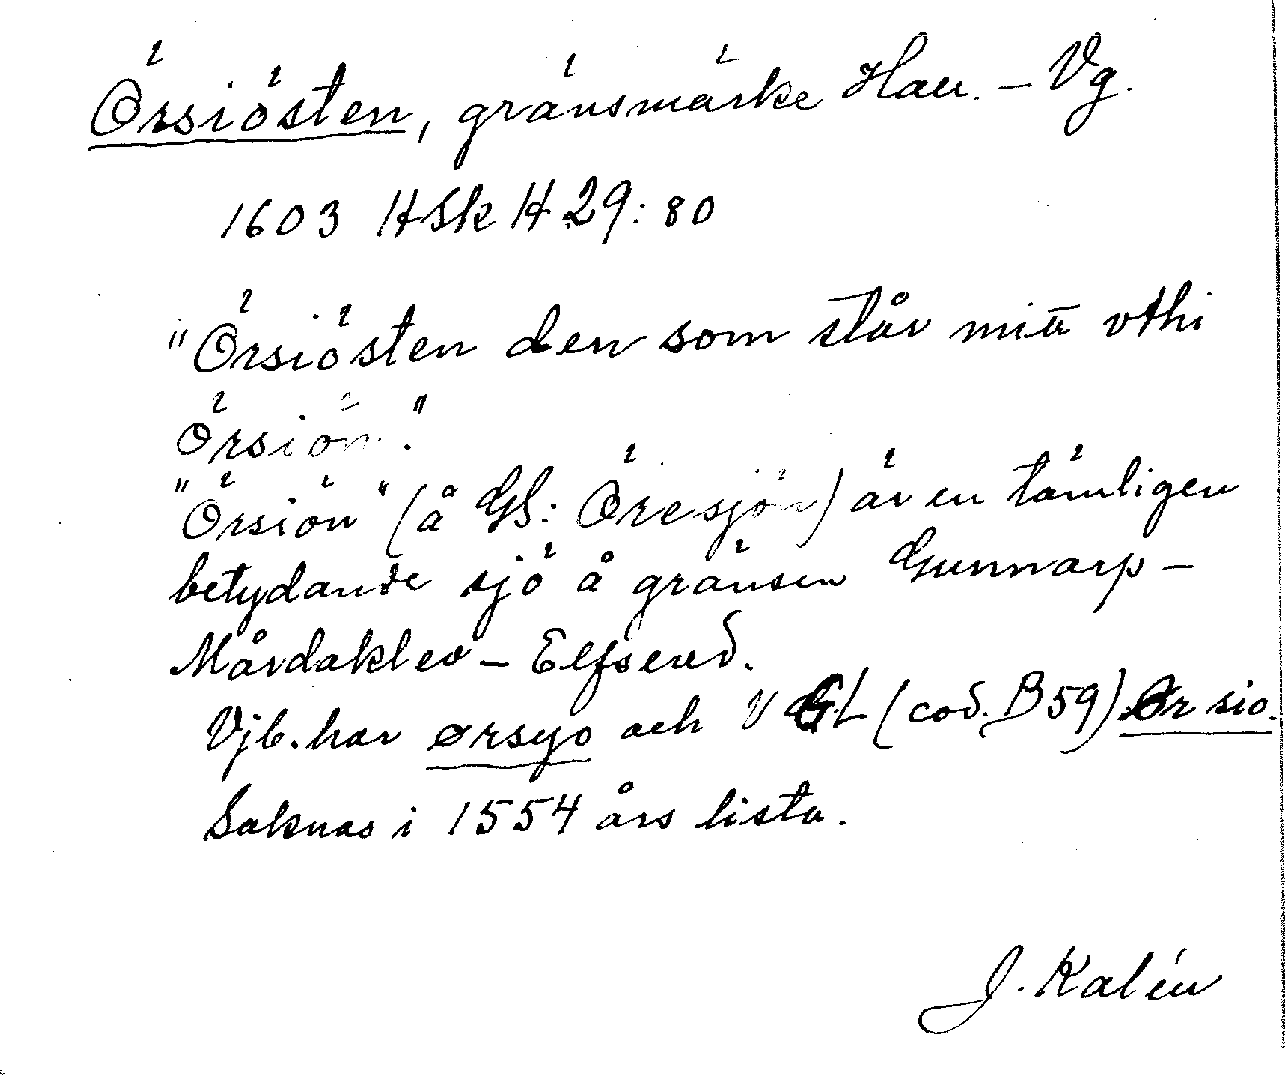 Örsiösten, gränsmärke Hall. – Vg.
1603 HSk H 29:80
"Örsiösten den som står mit vthi
Örsiön."
"Örsiön" (å GS: Öresjön) är en tämligen
betydande sjö å gränsen Gunnarp –
Mårdaklev – Elfsered.
Vjb. har ørsyo och V GL (cod. B 59) Ør sio.
Saknas i 1554 års lista.
J. Kalén